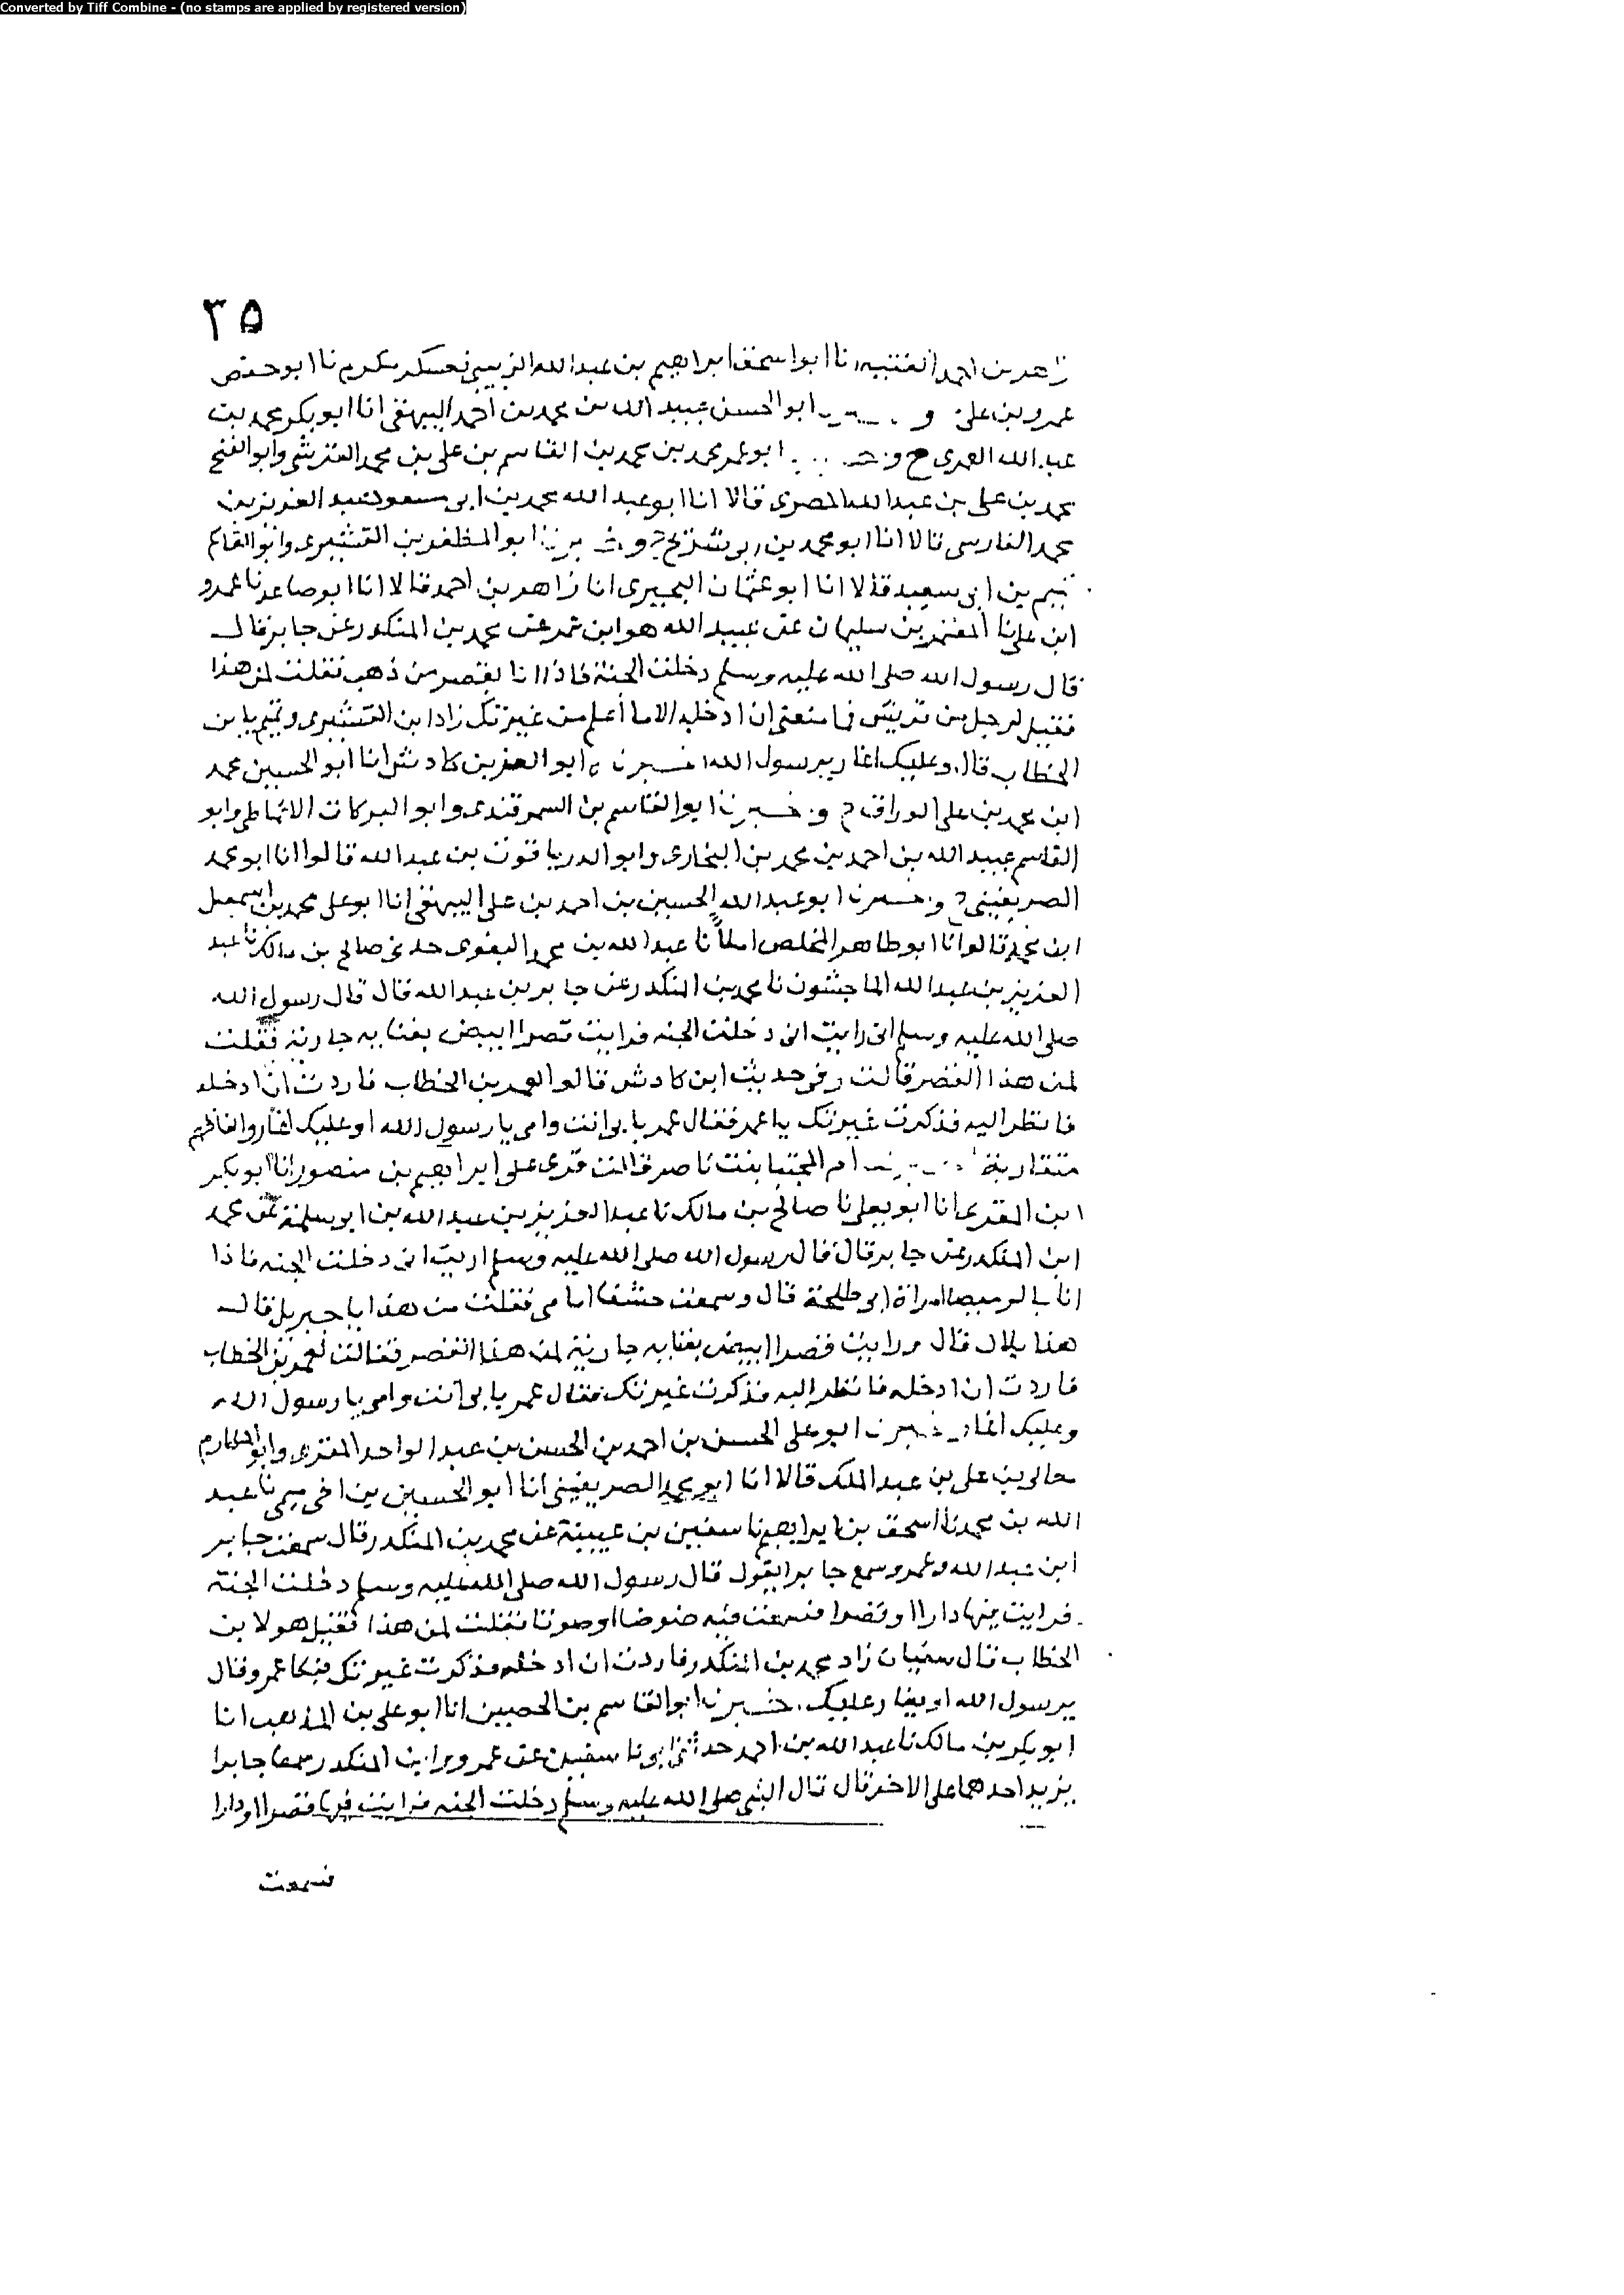 Converted by Tiff Combine - (no stamps are applied by registered version)
٣٥
زاهد بن احمد الفقيه انا ابو اسحق ابراهيم بن عبد الله الزبيبي بعسكر مكرم نا ابو حفص
عمرو بن على و ابو الحسن عبيد الله بن محمد بن احمد البيهقى انا ابو بكر محمد بن
عبد الله العمرى ح و ابو عمر محمد بن محمد بن القاسم بن على بن محمد القرشى وابو الفتح
محمد بن على بن عبد الله المصرى قالا انا ابو عبد الله محمد بن ابى مسعود عبد العزيز بن
محمد الفارسى قالا انا ابو محمد بن ابى شريح ح و ابو المظفر بن القشيرى وابو القاسم
تميم بن ابى سعيد قالا انا ابو عثمان البحيرى انا زاهر بن احمد قالا انا ابو صاعد نا عمرو
ابن على نا المعتمر بن سليمان عن عبيد الله هو ابن عمر عن محمد بن المنكدر عن جابر قال
قال رسول الله صلى الله عليه وسلم دخلت الجنة فاذا انا بقصر من ذهب فقلت لمن هذا
فقيل لرجل من قريش فما منعنى ان ادخله الا ما أعلم من غيرتك زاد ابن القشيرى وتميم يا بن
الخطاب قال وعليك اغار يرسول الله خبرنا ابو العز بن كادش انا ابو الحسين محمد
ابن محمد بن على الوراق ح و خبرنا ابو القاسم بن السمرقندى وابو البركات الانماطى وابو
القاسم عبيد الله بن احمد بن محمد بن البخارى وابو الدر ياقوت بن عبد الله قالوا انا ابو محمد
الصريفينى ح و خبرنا ابو عبد الله الحسين بن احمد بن على البيهقى انا ابو على محمد بن اسمعيل
ابن محمد قالوا انا ابو طاهر المخلص املأ نا عبد الله بن محمد البغوى حدثنى صالح بن مالك نا عبد
العزيز بن عبد الله الماجشون نا محمد بن المنكدر عن جابر بن عبد الله قال قال رسول الله
صلى الله عليه وسلم انى رايت انى دخلت الجنه فرايت قصرا ابيض بفنايه جارية فقلت
لمن هذا القصر قالت وفى حديث ابن كادش قالوا لعمر بن الخطاب فاردت ان ادخله
فانظر اليه فذكرت غيرتك يا عمر فقال عمر بابى انت وامى يا رسول الله او عليك اغار والفاظهم
متقاربة ام المجتبا بنت ناصر قالت قرى على ابراهيم بن منصور انا ابو بكر
ابن المقرى انا ابو يعلى نا صالح بن مالك نا عبد العزيز بن عبد الله بن ابى سلمة عن محمد
ابن المنكدر عن جابر قال قال رسول الله صلى الله عليه وسلم اريت انى دخلت الجنه فاذا
انا بالرميصا امراة ابى طلحة قال وسمعت خشفا امامى فقلت من هذا يا جبريل قال
هذا بلال قال ورايت قصرا ابيض بفنايه جارية لمن هذا القصر فقالت لعمر بن الخطاب
فاردت ان ادخله فانظر اليه فذكرت غيرتك فقال عمر يا بى انت وامى يا رسول الله
وعليك اغار خبرنا ابو على الحسن بن احمد بن الحسن بن عبد الواحد المقرى وابو المكارم
على بن عبد الملك قالا انا ابو محمد الصريفينى انا ابو الحسين بن اخى ميمى نا عبد
الله بن محمد نا اسحق بن ابراهيم نا سفين بن عيينة عن محمد بن المنكدر قال سمعت جابر
ابن عبد الله وعمرو سمع جابرا يقول قال رسول الله صلى الله عليه وسلم دخلت الجنة
فرايت فيها دارا او قصرا فسمعت فيه ضوضا او صوتا فقلت لمن هذا فقيل هو لابن
الخطاب قال سفيان زاد محمد بن المنكدر فاردت ان ادخله فذكرت غيرتك فبكا عمر وقال
يرسول الله او يغار عليك خبرنا ابو القاسم بن الحصين انا ابو على بن المذهب انا
ابو بكر بن مالك نا عبد الله بن احمد حدثنى ابى نا سفين عن عمرو وابن المنكدر سمعا جابرا
يزيد احدهما على الاخر قال قال النبى صلى الله عليه وسلم دخلت الجنه فرايت فيها قصرا او دارا
فسمعت